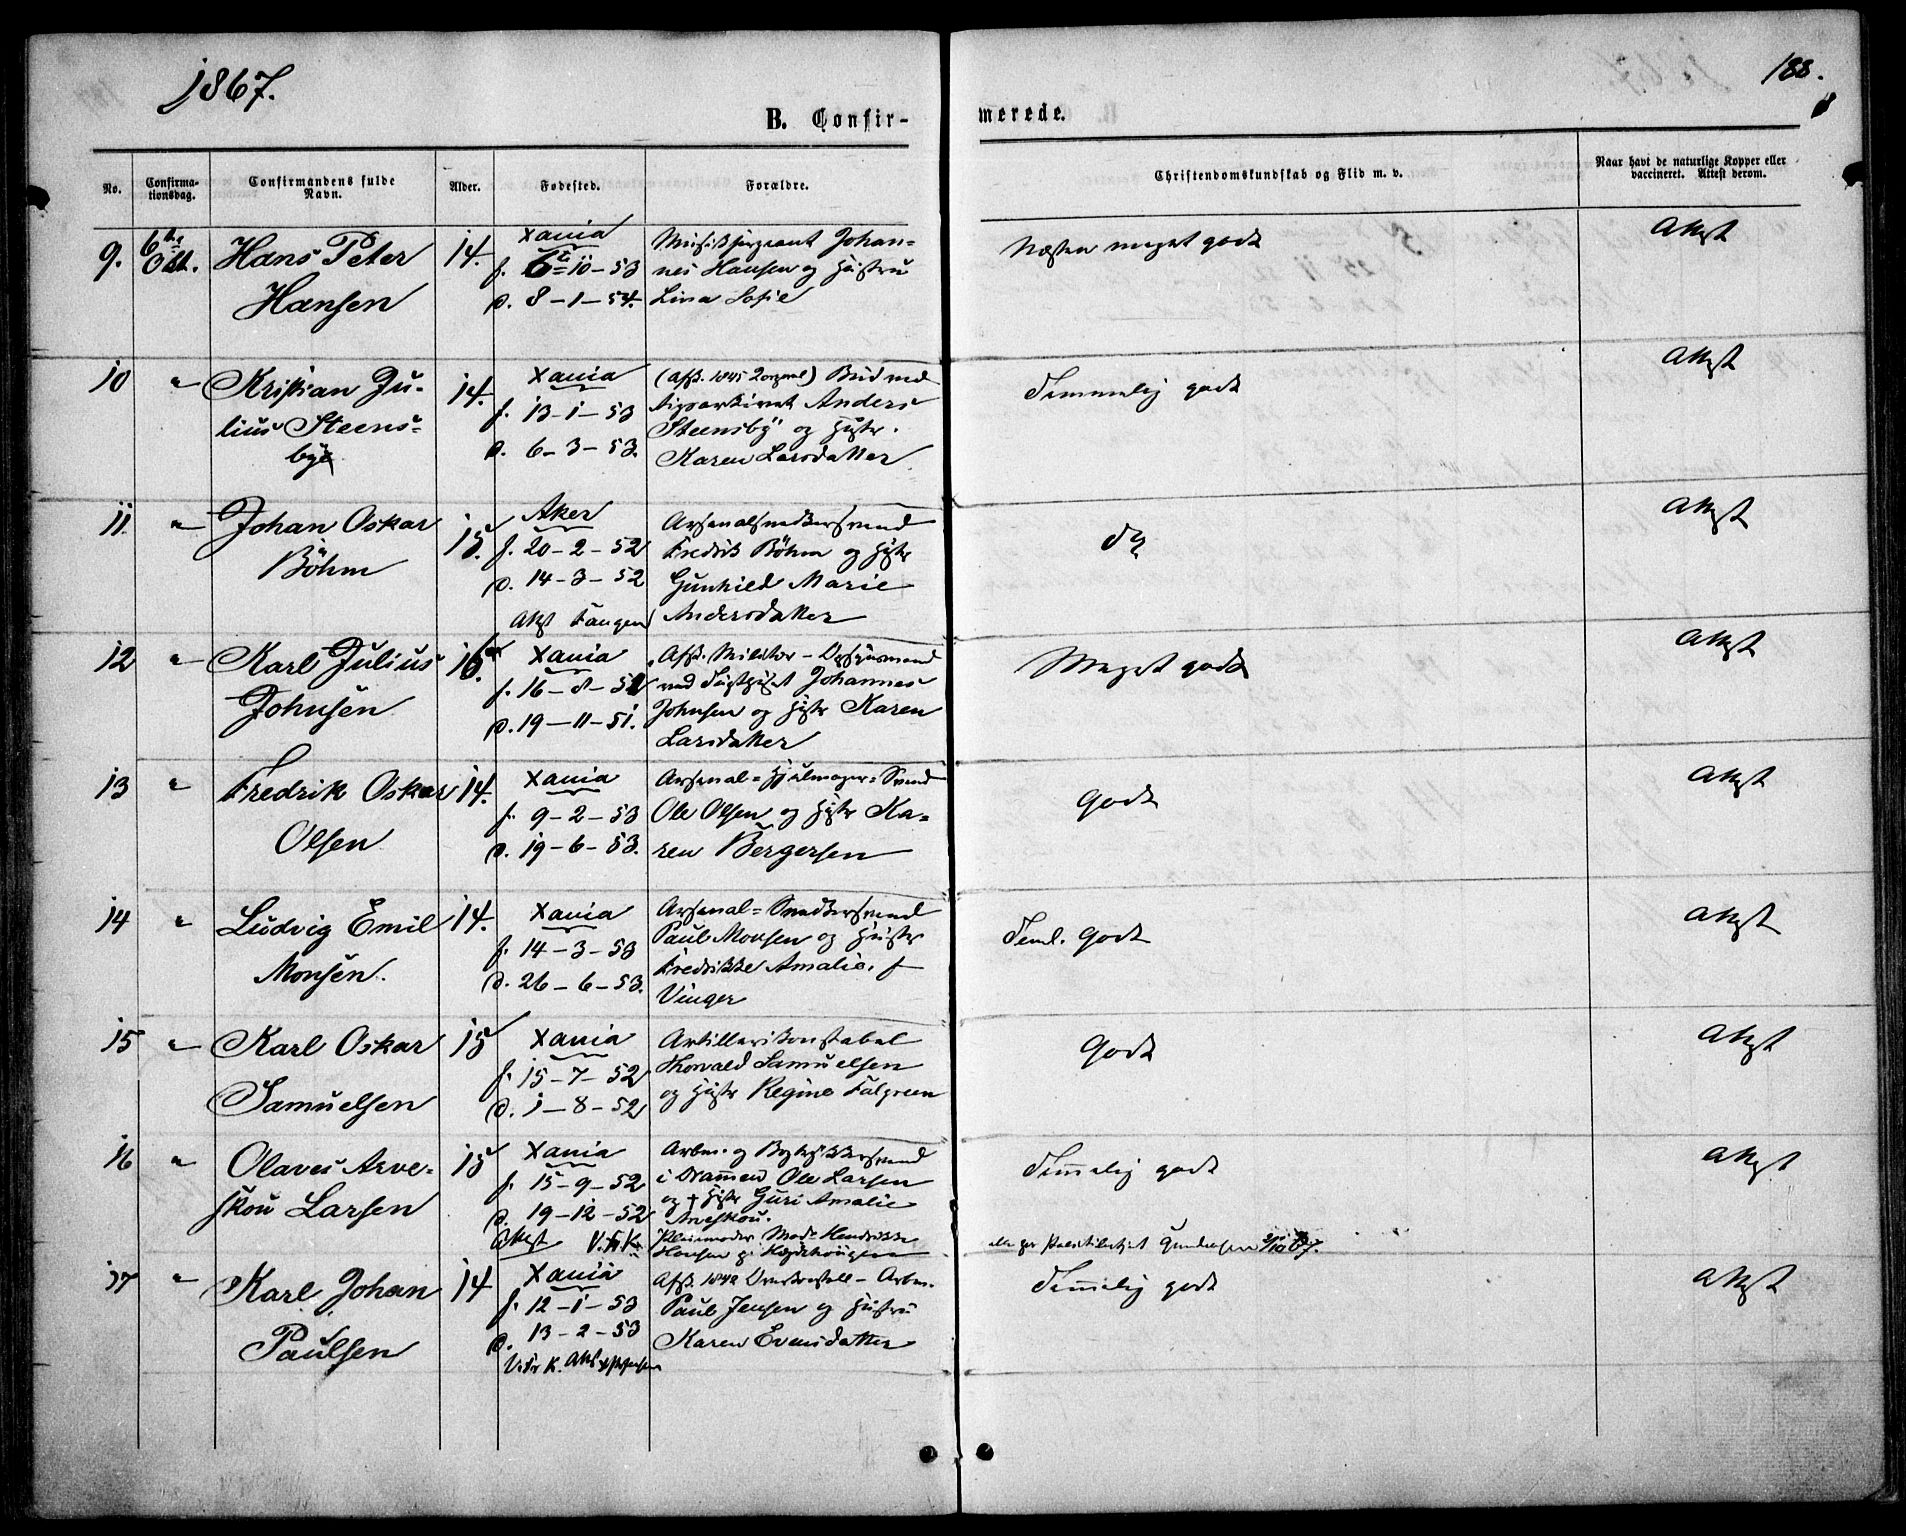 1867.
188.
B. Confir-
merede.
No.
Confirma-
tionsdag.
Confirmandens fulde
Navn.
Alder.
Fødested.
Forældre.
Christendomskundskab og Flid m. v.
Naar havt de naturlige Kopper eller
vaccineret. Attest derom.
9.
6te
Oct.
Hans Peter
Hansen
14.
Xania
f. 6-10-53
d. 8-1-54.
Musiksergeant Johan-
nes Hansen og Hustru
Lina Sofie
Næsten meget godt
Attest
10
"
Kristian Ju-
lius Steens-
bye
14.
Xania
f. 13-1-53
d. 6-3-53.
(Afsk. 1845 ) Bud ved
Anders
Steensby og Hustr.
Karen Larsdatter
Temmelig godt
Attest
11.
"
Johan Oskar
Böhm
15.
Aker
f. 20-2-52
d. 14-3-52
Attst Fangen
Arsenalsnedkersvend
Fredrik Böhm og Hustr
Gunhild Marie
Andersdatter
do
Attest
12
"
Karl Julius
Johnsen
16.
Xania
f. 16-8-51
d. 19-11-51.
Afsk. Militær - Opsynsmand
ved Johannes
Johnsen og Hustr Karen
Larsdatter
Meget godt
Attest
13
"
Fredrik Oskar
Olsen
14.
Xania
f. 9-2-53
d. 19-6-53.
Arsenal-Hjulmager-Svend
Ole Olsen og Hustr Ka-
ren Bergersen
Godt
Attest
14
"
Ludvig Emil
Monsen.
14.
Xania
f. 14-3-53
d. 26-6-53.
Arsenal-Snedkersvend
Paul Monsen og Hustr
Fredrikke Amalie, f
Vinger
Teml. Godt
Attest
15
"
Karl Oskar
Samuelsen
15
Xania
f. 15-7-52
d. 1-8-52
Artillerikonstabel
Thorvald Samuelsen
og Hustr Regine Falgreen
Godt
Attest
16
"
Olaves Arve-
skou Larsen
15
Xania
f. 15-9-52
d. 19-12-52
Attest V. Fr K.
Arbm. og Bogtrykkersvend
i Drammen Ole Larsen
og + Hustr Guri Amalie
Arveskou.
Pleiemoder Mad. Hendrikke
Hansen
Temmelig godt
Gundersen 3/10 67.
Attest
17
"
Karl Johan
Paulsen
14
Xania
f. 12-1-53
d. 13-2-53
V. Fr K. Att
Afsk. 1842 - Arbm.
Paul Jensen og Hustru
Karen Evensdatter
Temmelig godt
Attest